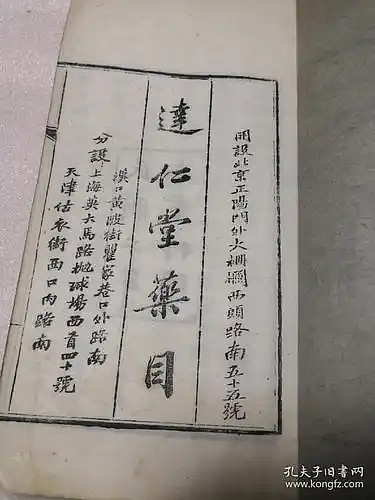 開設北京正陽門外大柵欄西頭路南五十五號
達仁堂藥目
漢口黃陂街瞿家巷口外路南
分設上海英大馬路拋球場西首四十號
天津估衣街西口內路南
孔夫子旧书网
www.kongfz.com